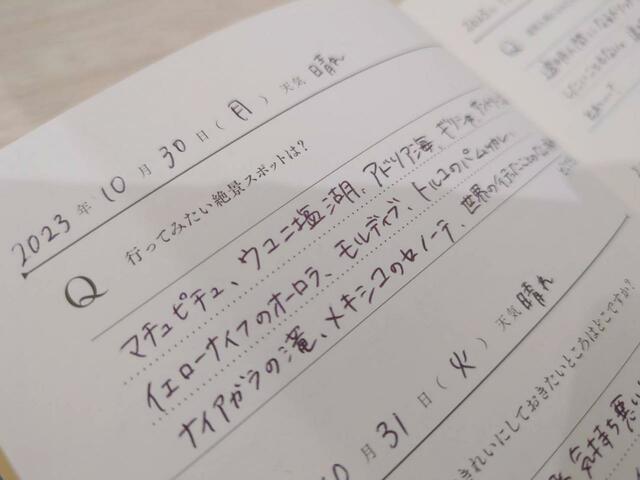 2023 年 10 月 30 日 (月) 天気 晴れ
Q 行ってみたい絶景スポットは?
マチュピチュ、ウユニ塩湖、アドリア海、ギリシャ
イエローナイフのオーロラ、モルディブ、トルコのパムッカレ、
ナイアガラの滝、メキシコのセノーテ、世界の行った
月 31 日 (火) 天気 晴れ
きれいにしておきたいところはどこですか?
気持ち悪い
Q